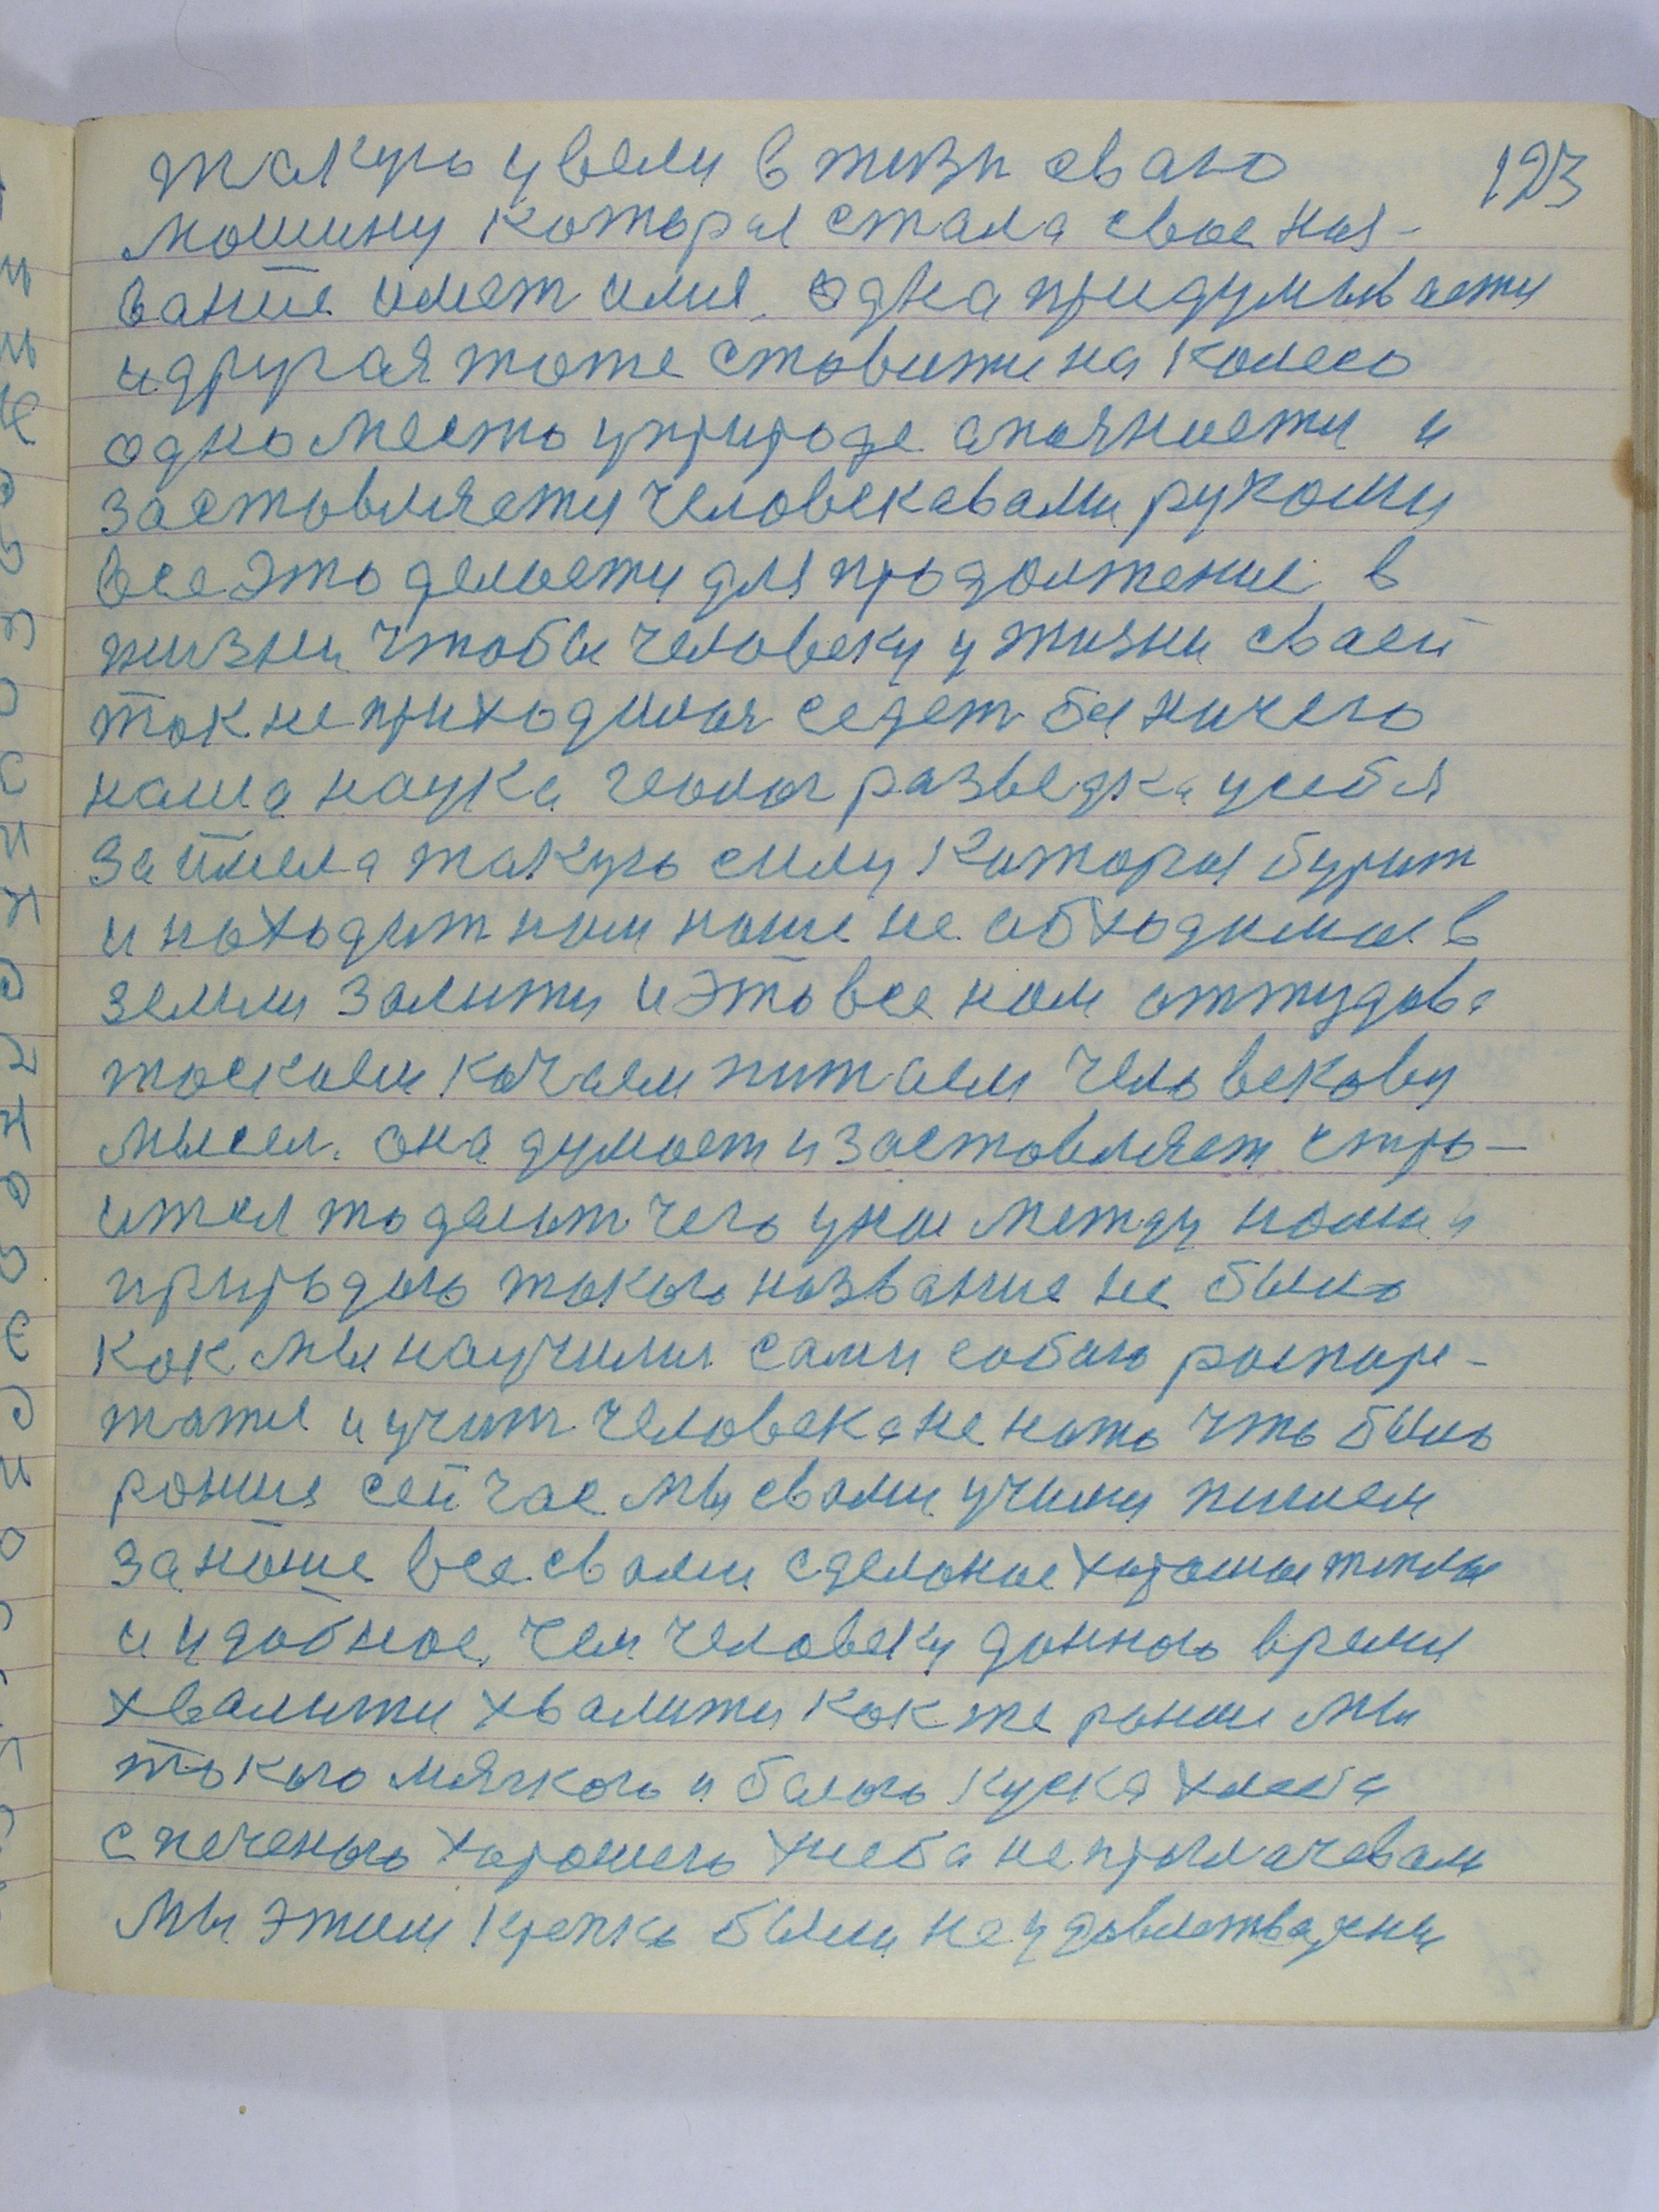 123
такую увели в жизн сваю
мошину которая стала свое наз-
вание имет имя. одна придумывaети
и другая тоже ставити на колесо
одно место у природе спаяниети и
заставляети человека вами рукоми
все это делаети для продолжение в
жизни чтобы человеку у жизни сваей
так не приходилося седет бы ничего
наша наука геолог разведка у себя
за имела такую силу которая бурит
и находит нам наше не обходимое в
земли залижи и это все нам оттудова
таскаем качаем питаем человекову
мысел. она думает и заставляет стро-
ител то делат чего у нас между нами и
природою такого название не было
как мы научилис сами собою распоре-
жатие и учит человека не нато что было
раншя сейчас мы с вами учими пишем
за наше все с вами сделаное харошое теплое
и удобное. Чем человеку данного время
хвалити хвалити как же ранше мы
такого мягкого и балого куска хлеба
спеченого харошего хлеба не проглачевали
Мы этим крепко были не удовлетваряны